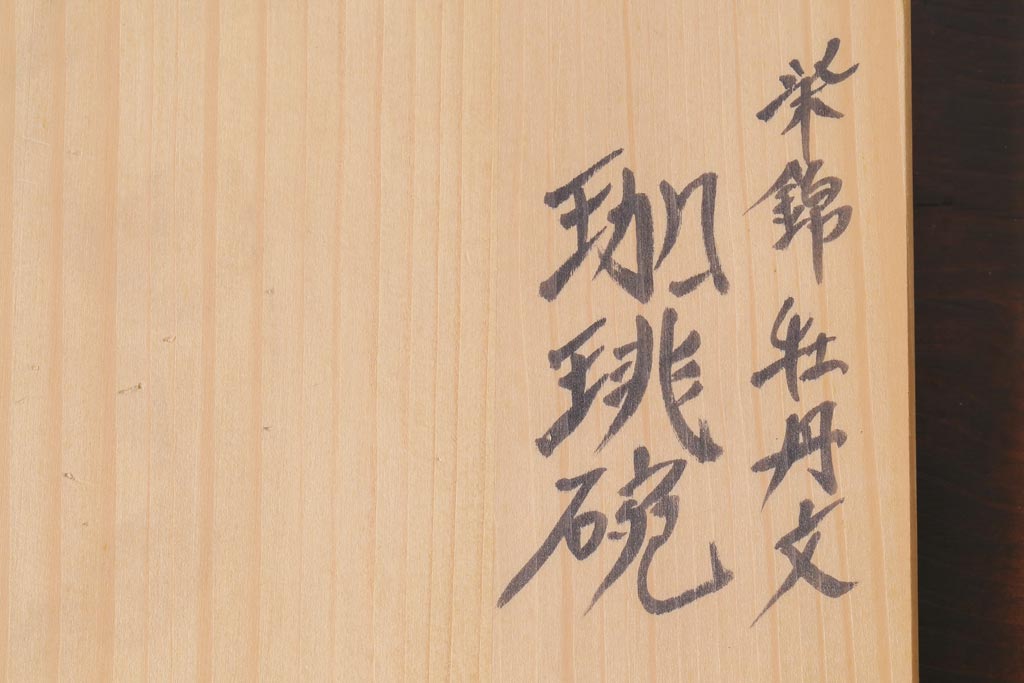 染錦 牡丹文
珈琲碗